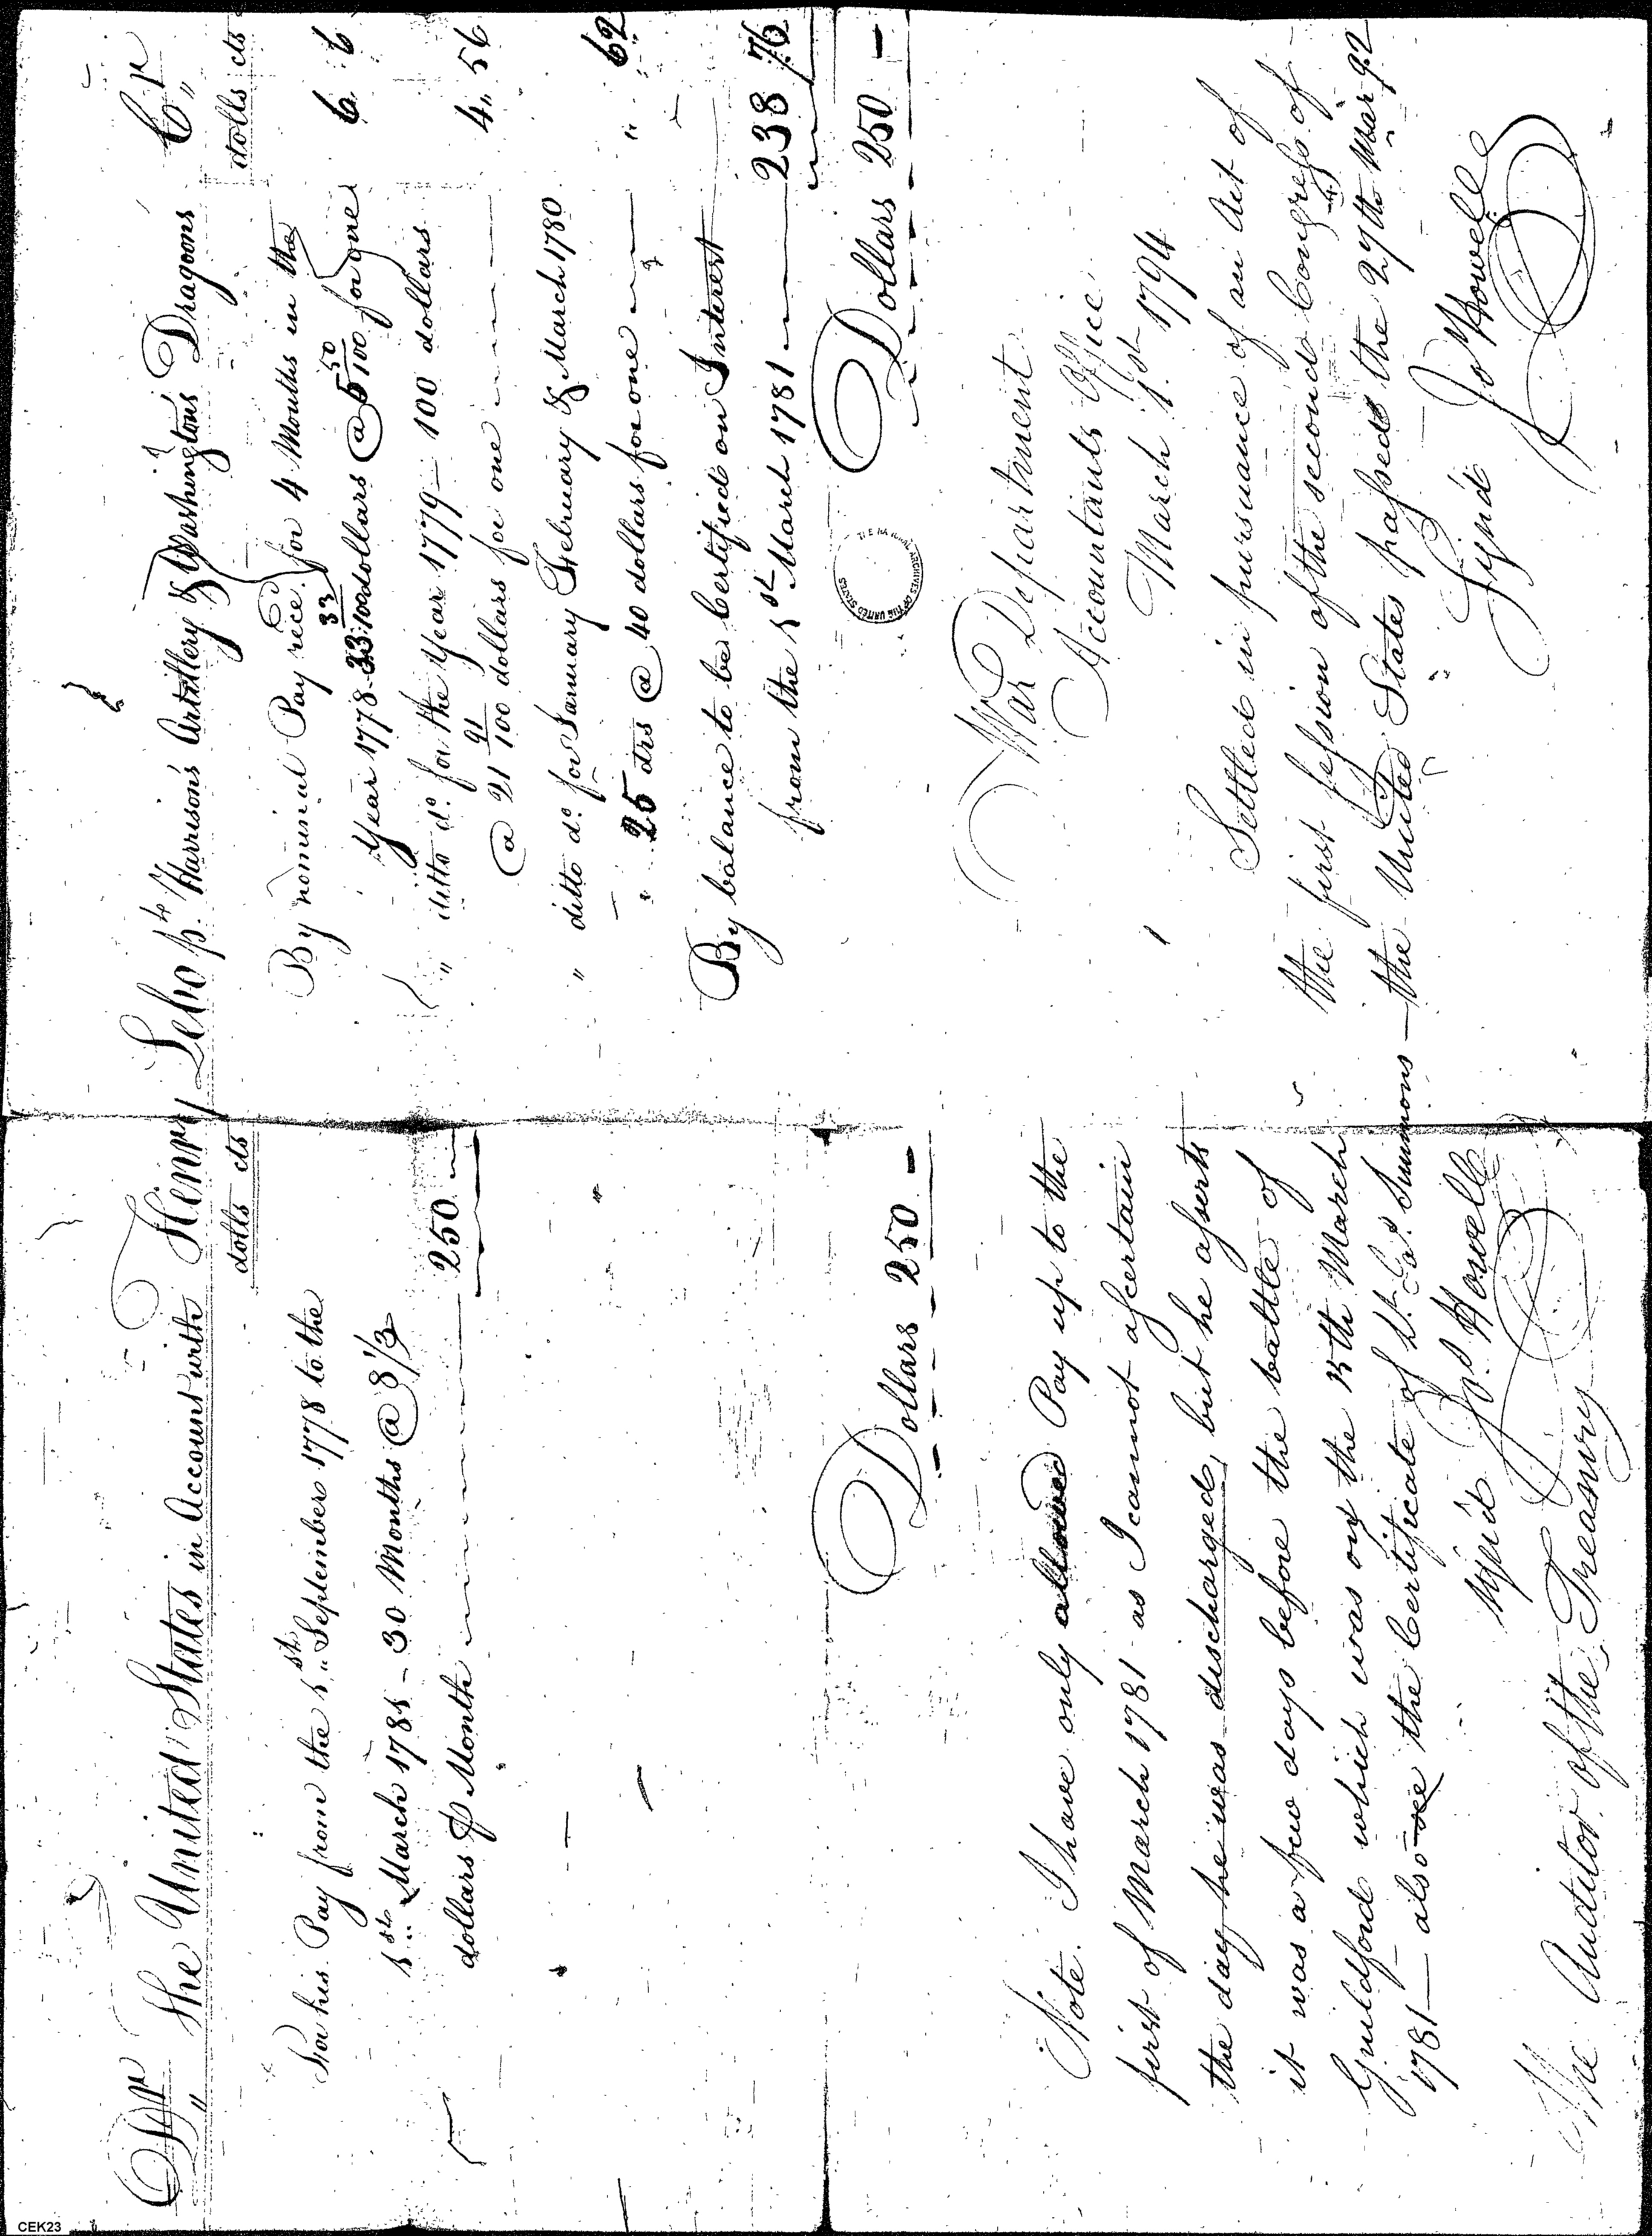 Dr The United States in Account with Henry Lebo pt. Harrison's Artillery & Washington's Dragoons Cr
dolls cts
For his Pay from the 1st September 1778 to the
1st March 1781 - 30 Months @ 8 1/3
dollars ⅌ Month 250
Dollars 250 -
Note. I have only allowed Pay up to the
first of March 1781 as I cannot ascertain
the day he was discharged, but he asserts
it was a few days before the battle of
Guildford which was on the 15th March
1781 — also see the Certificate of Lt. Cod. Simmons
Sign'd Jos. Howell
The Auditor of the Treasury
dolls cts
By nominal Pay rece'd for 4 Months in the
Year 1778 33 33/100 dollars @ 5 50/100 for one 6 6
" ditto do. for the Year 1779 - 100 dollars
@ 21 91/100 dollars for one 4 " 56
" ditto do. for January February & March 1780
25 drs @ 40 dollars for one " 62
By balance to be Certified on Interest
from the 1st March 1781 238 76
Dollars 250 -
THE NATIONAL ARCHIVES OF THE UNITED STATES
War Department
Accountants Office
March 1st 1794
Settled in pursuance of an Act of
the first session of the second Congress of
the United States passed the 27th Mar 92
Sign'd Jo Howell
CEK23